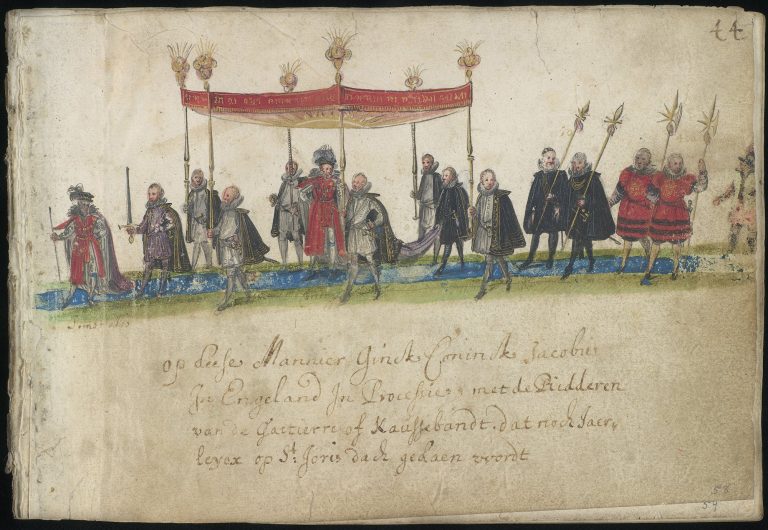 44
op deese Mannier Ginck Coninck Jacobus
In Engeland In Processie, met de Ridderen
van de Gartierre of Kaussebandt, dat noch Jaer,
leyex op St Joris dach gedaen wordt
58
57